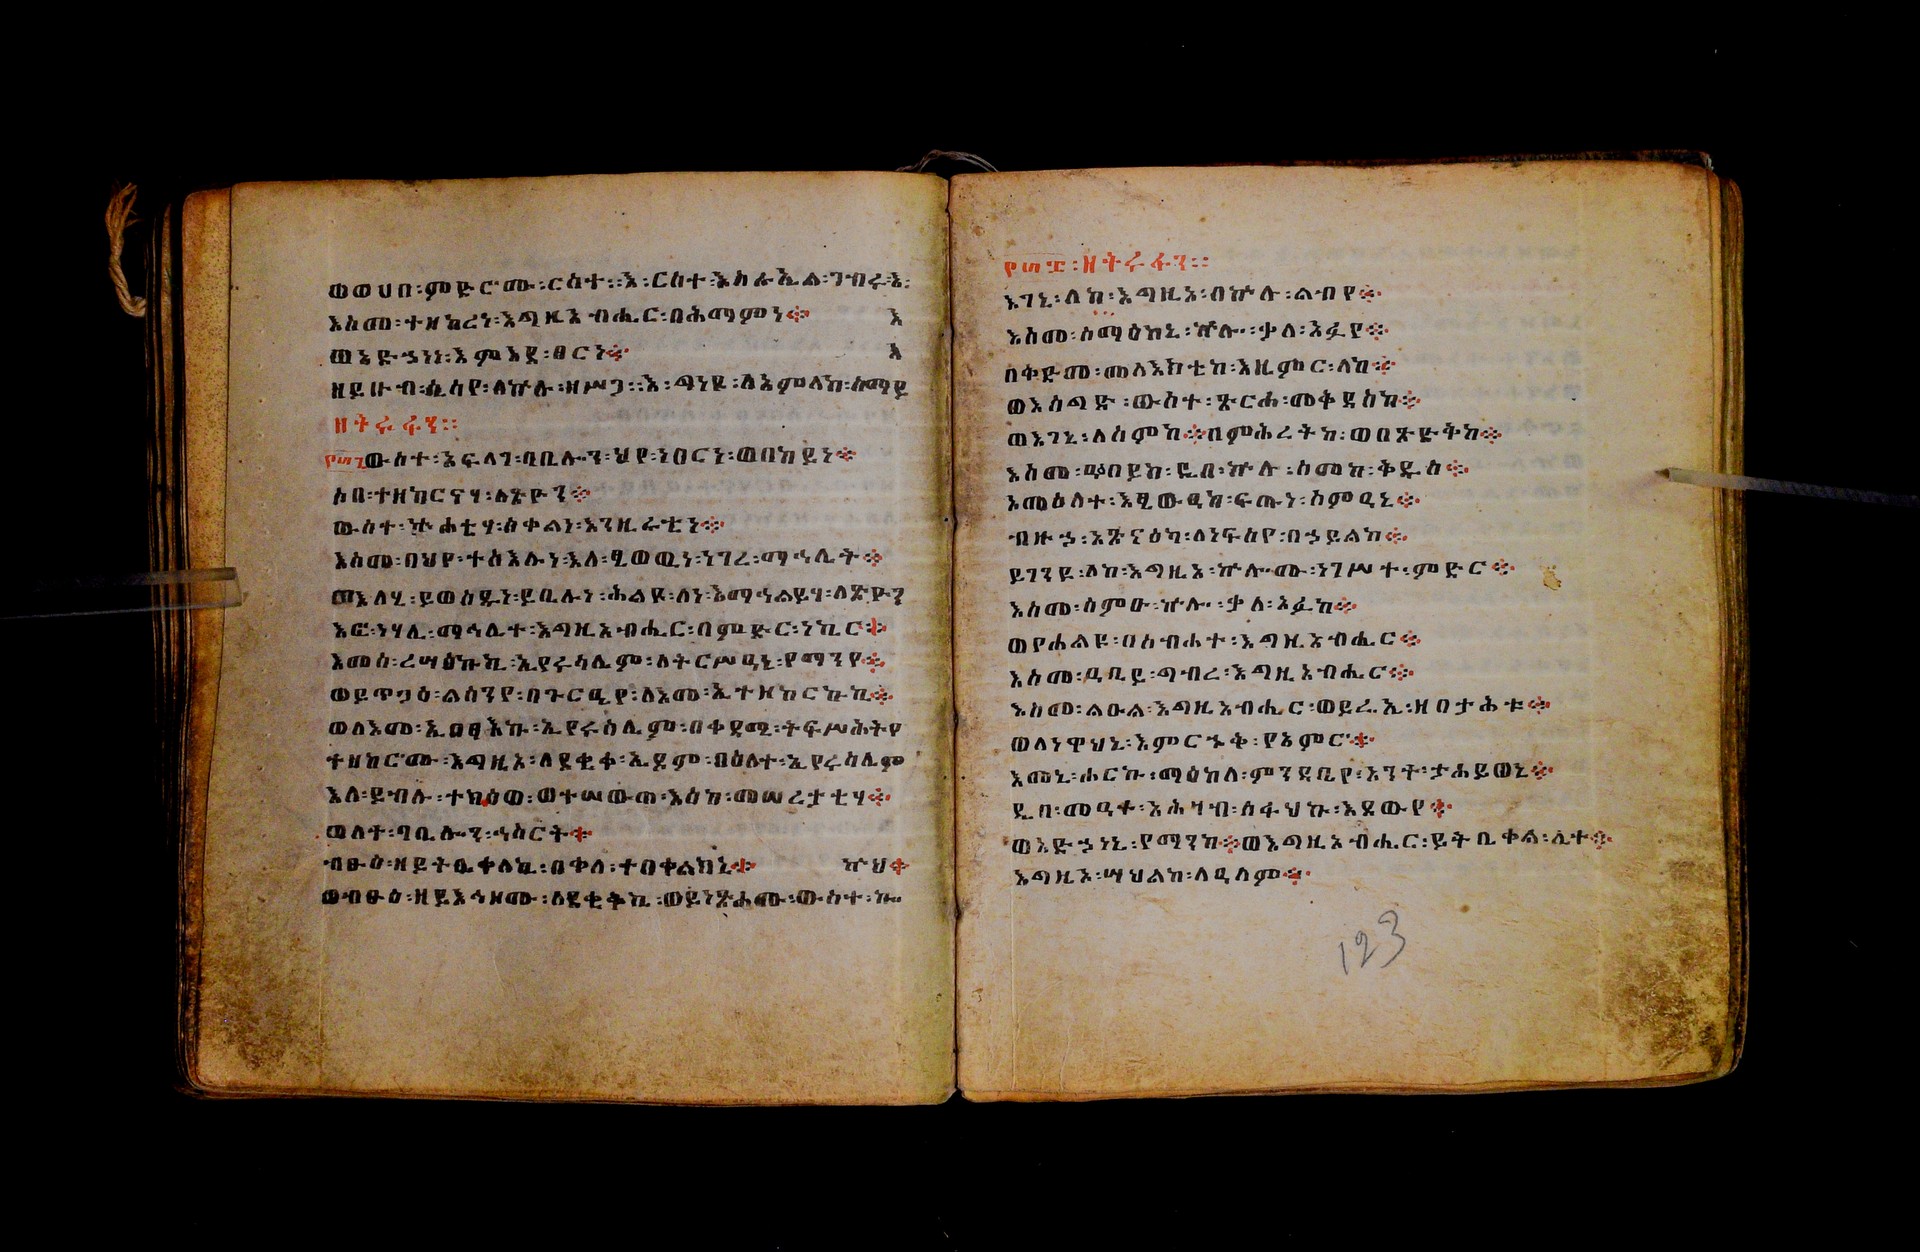 ወወሀበ፡ምድርሙ፡ርስተ፡፡እ፡ርስተ፡እስራኤል፡ገብሩ፡እ፡
እስመ፡ተዘከረነ፡እግዚአብሔር፡በሕማምነ፨ እ
ወአድኃነነ፡እምእደ፡ፀርነ፨ እ
ዘይሁብ፡ሲሳየ፡ለኵሉ፡ዘሥጋ፡፡እ፡ግነዩ፡ለአምላከ፡ሰማይ
ዘትሩፋን፡፡
፻፴፮ውስተ፡አፍላገ፡ባቢሎን፡ህየ፡ነበርነ፡ወበከይነ፨
ሶበ፡ተዘከርናሃ፡ለጽዮን፨
ውስተ፡ኵሐቲሃ፡ሰቀልነ፡እንዚራቲነ፨
እስመ፡በህየ፡ተስእሉነ፡እለ፡ፄወዉነ፡ነገረ፡ማኅሌት፨
ወእለሂ፡ይወስዱነ፡ይቤሉነ፡ሕልዩ፡ለነ፡እማኅልይሃ፡ለጽዮን
እፎ፡ነሃሊ፡ማኅሌተ፡እግዚአብሔር፡በምድር፡ነኪር፨
እመሰ፡ረሣዕኩኪ፡ኢየሩሳሌም፡ለትርሥዓኒ፡የማንየ፨
ወይጥጋዕ፡ልሳንየ፡በጉርዔየ፡ለእመ፡ኢተዘከርኩኪ፨
ወለእመ፡ኢበፃእኩ፡ኢየሩሳሌም፡በቀዳሚ፡ትፍሥሕትየ
ተዘከርሙ፡እግዚኦ፡ለደቂቀ፡ኤዶም፡በዕለተ፡ኢየሩሳሌም
እለ፡ይብሉ፡ተክዕው፡ወተሠውጠ፡እስከ፡መሠረታቲሃ፨
ወለተ፡ባቢሎን፡ኅስርት፨
ብፁዕ፡ዘይትቤቀለኪ፡በቀለ፡ተበቀልክኒ፨ ኵህ፨
ወብፁዕ፡ዘይእኅዞሙ፡ለደቂቅኪ፡ወይነጽሖሙ፡ውስተ፡ኰ
፻፴፯፡ዘትሩፋን፡፡
እገኒ፡ለከ፡እግዚኦ፡በኵሉ፡ልብየ፨
እስመ፡ሰማዕከኒ፡ኵሎ፡ቃለ፡አፉየ፨
በቅድመ፡መላእክቲከ፡እዚምር፡ለከ፨
ወእሰግድ፡ውስተ፡ጽርሐ፡መቅደስከ፨
ወእገኒ፡ለስምከ፨በምሕረትከ፡ወበጽድቅከ፨
እስመ፡ዓበይከ፡ዲበ፡ኵሉ፡ስመከ፡ቅዱስ፨
አመዕለተ፡እጼውዓከ፡ፍጡነ፡ስምዓኒ፨
ብዙኃ፡አጽናዕካ፡ለነፍስየ፡በኃይልከ፨
ይገንዩ፡ለከ፡እግዚኦ፡ኵሎሙ፡ነገሥተ፡ምድር፨
እስመ፡ሰምዑ፡ኵሎ፡ቃለ፡አፉከ፨
ወየሐልዩ፡በስብሐተ፡እግዚአብሔር፨
እስመ፡ዓቢይ፡ግብረ፡እግዚአብሔር፨
እስመ፡ልዑል፡እግዚአብሔር፡ወይሬኢ፡ዘበታሕቱ፨
ወለነዋህኒ፡እምርኁቅ፡የአምር፨
እመኒ፡ሐርኩ፡ማዕከለ፡ምንዳቤየ፡አንት፡ታሐይወኒ፨
ዲበ፡መዓተ፡እሕዛብ፡ሰፋህኩ፡እደውየ፨
ወአድኃነኒ፡የማንከ፨ወእግዚአብሔር፡ይትቤቀል፡ሊተ፨
እግዚኦ፡ሣህልከ፡ለዓለም፨
123